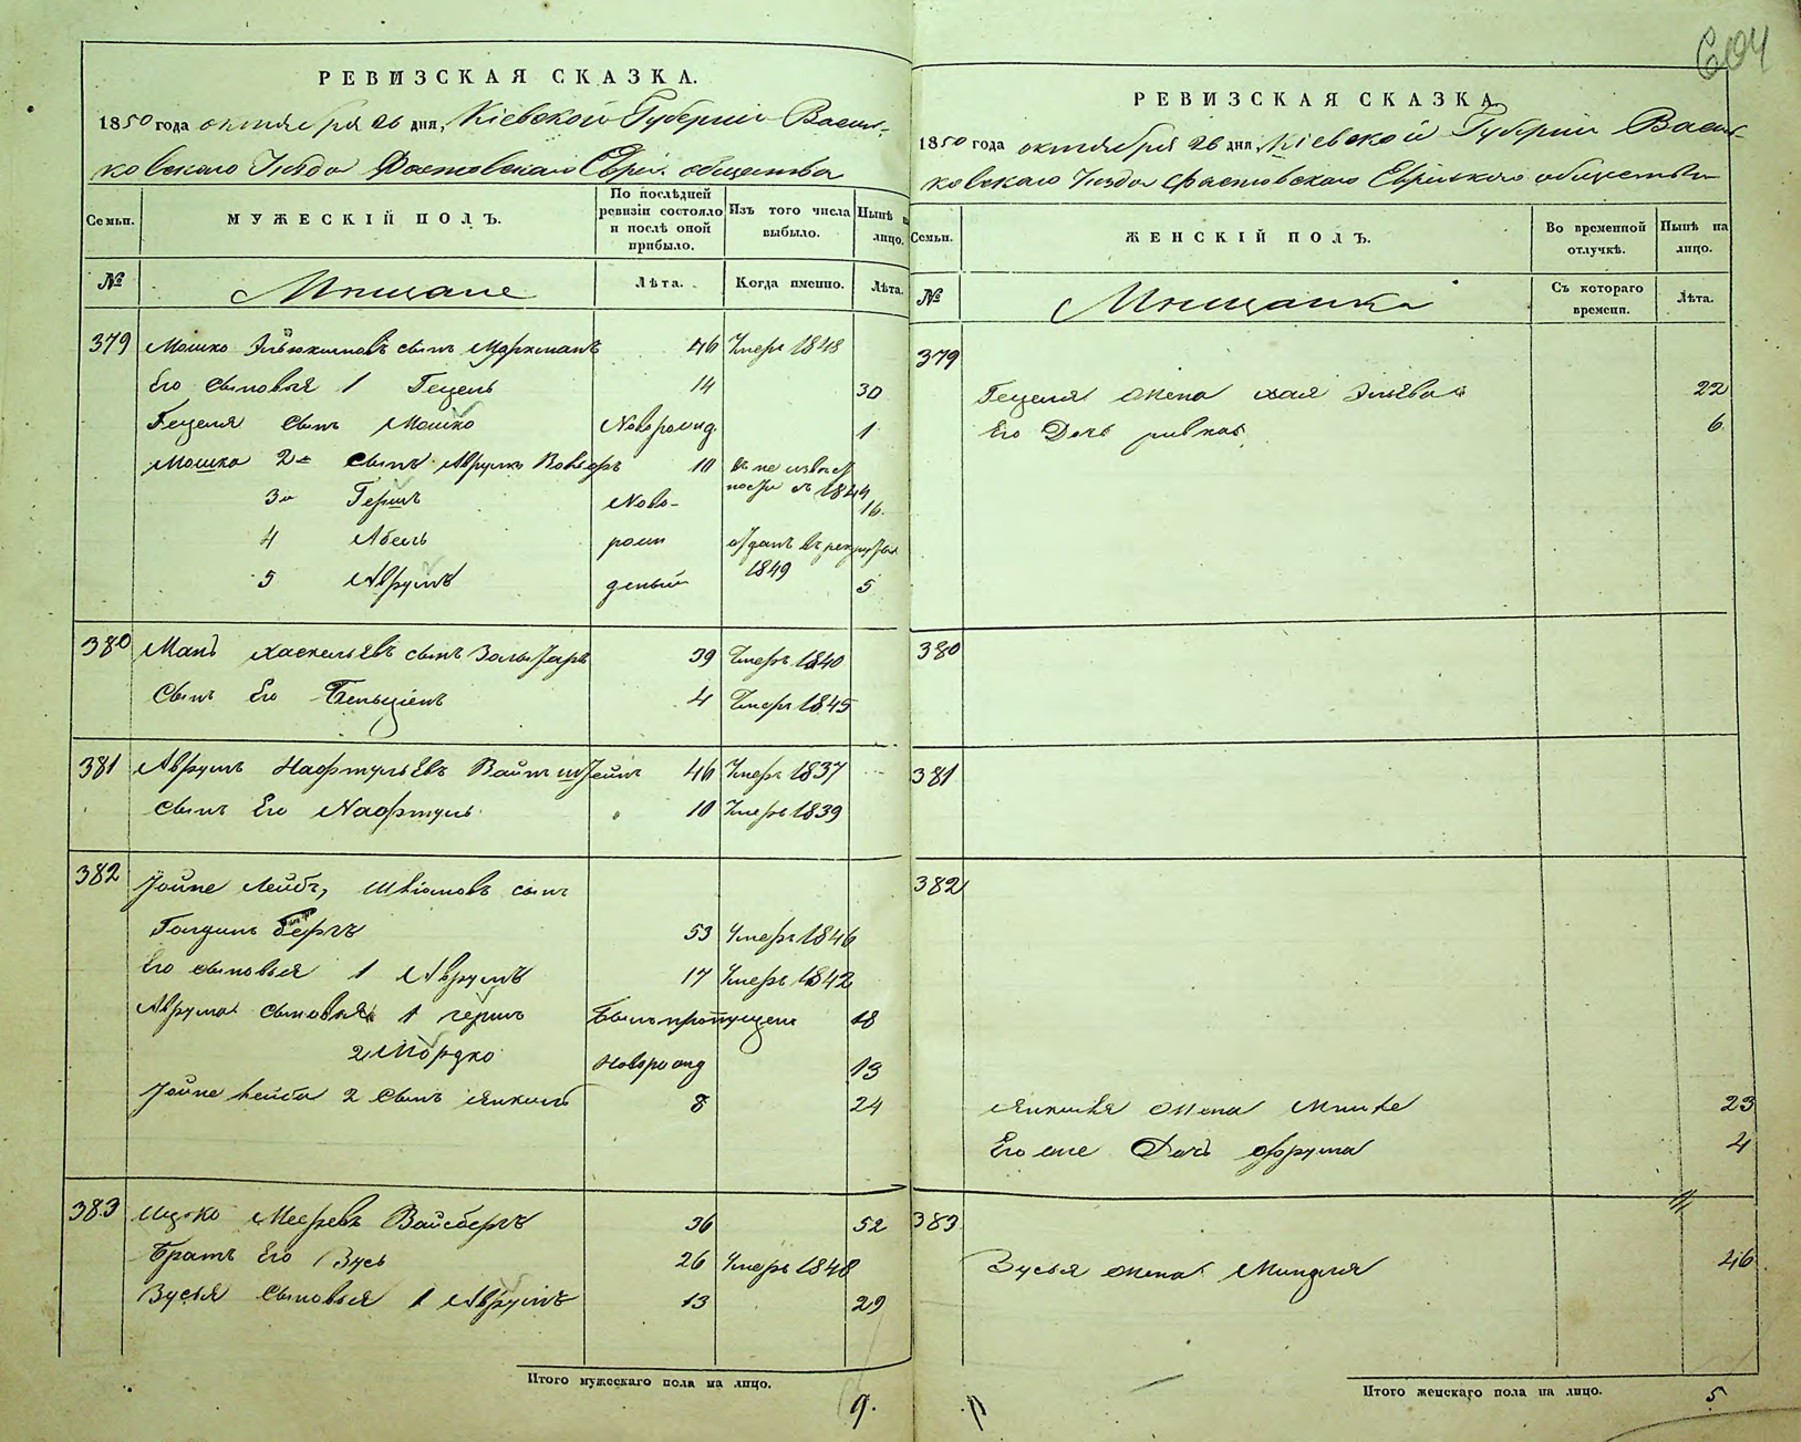 604
РЕВИЗСКАЯ СКАЗКА.
1850 года октября 26 дня, Кіевской Губерніи Василь-
ковскаго Уѣзда Фастовскаго Еврей. общества
Семьи.
МУЖЕСКІЙ ПОЛЪ.
По послѣдней ревизіи состояло и послѣ оной прибыло.
Изъ того числа выбыло.
Нынѣ на лицо.
№
Мѣщане
Лѣта.
Когда именно.
Лѣта.
379 Мошко сынъ Маркманъ 46 Умеръ 1848
Его сыновья 1 Гецель 14 30
Гецеля сынъ Мошко Новорожд. 1
Мошка 2й сынъ Аврумъ 10 въ неизвѣст
ности съ 1844
3й Гершъ Ново- 16
4 Абель рож отданъ въ рекруты
1849
5 Аврумъ деный 5
380 Манъ Хаскельевъ сынъ 39 Умеръ 1840
Сынъ Его Бенціенъ 4 Умеръ 1845
381 Аврумъ Нафтульевъ Вайнштейнъ 46 Умеръ 1837
Сынъ Его Нафтуль 10 Умеръ 1839
382 Іойне Лейбъ, сынъ
Голдинбергъ 53 Умеръ 1846
Его сыновья 1 Аврумъ 17 Умеръ 1842
Аврума сыновья 1 Гершъ Былъ пропущен 18
2 Мордко Новорожд 13
Іойне Лейба 2 сынъ Янкель 8 24
383 Ицко Меерева Вайсбергъ 36 52
Братъ Его Зусь 26 Умеръ 1848
Зуся сыновья 1 Аврумъ 13 29
Итого мужескаго пола на лицо.
9.
РЕВИЗСКАЯ СКАЗКА
1850 года октября 26 дня, Кіевской Губерніи Василь-
ковскаго Уѣзда Фастовскаго Еврейскаго общества
Семьи.
ЖЕНСКІЙ ПОЛЪ.
Во временной отлучкѣ.
Нынѣ на лицо.
№
Мѣщанки
Съ котораго времени.
Лѣта.
379
Гецеля жена Хая 22
Его Дочь Ривка 6
380
381
382
Янкеля жена 23
Его же Дочь Фрума 4
383
Зуся жена Миндля 46
Итого женскаго пола на лицо.
5